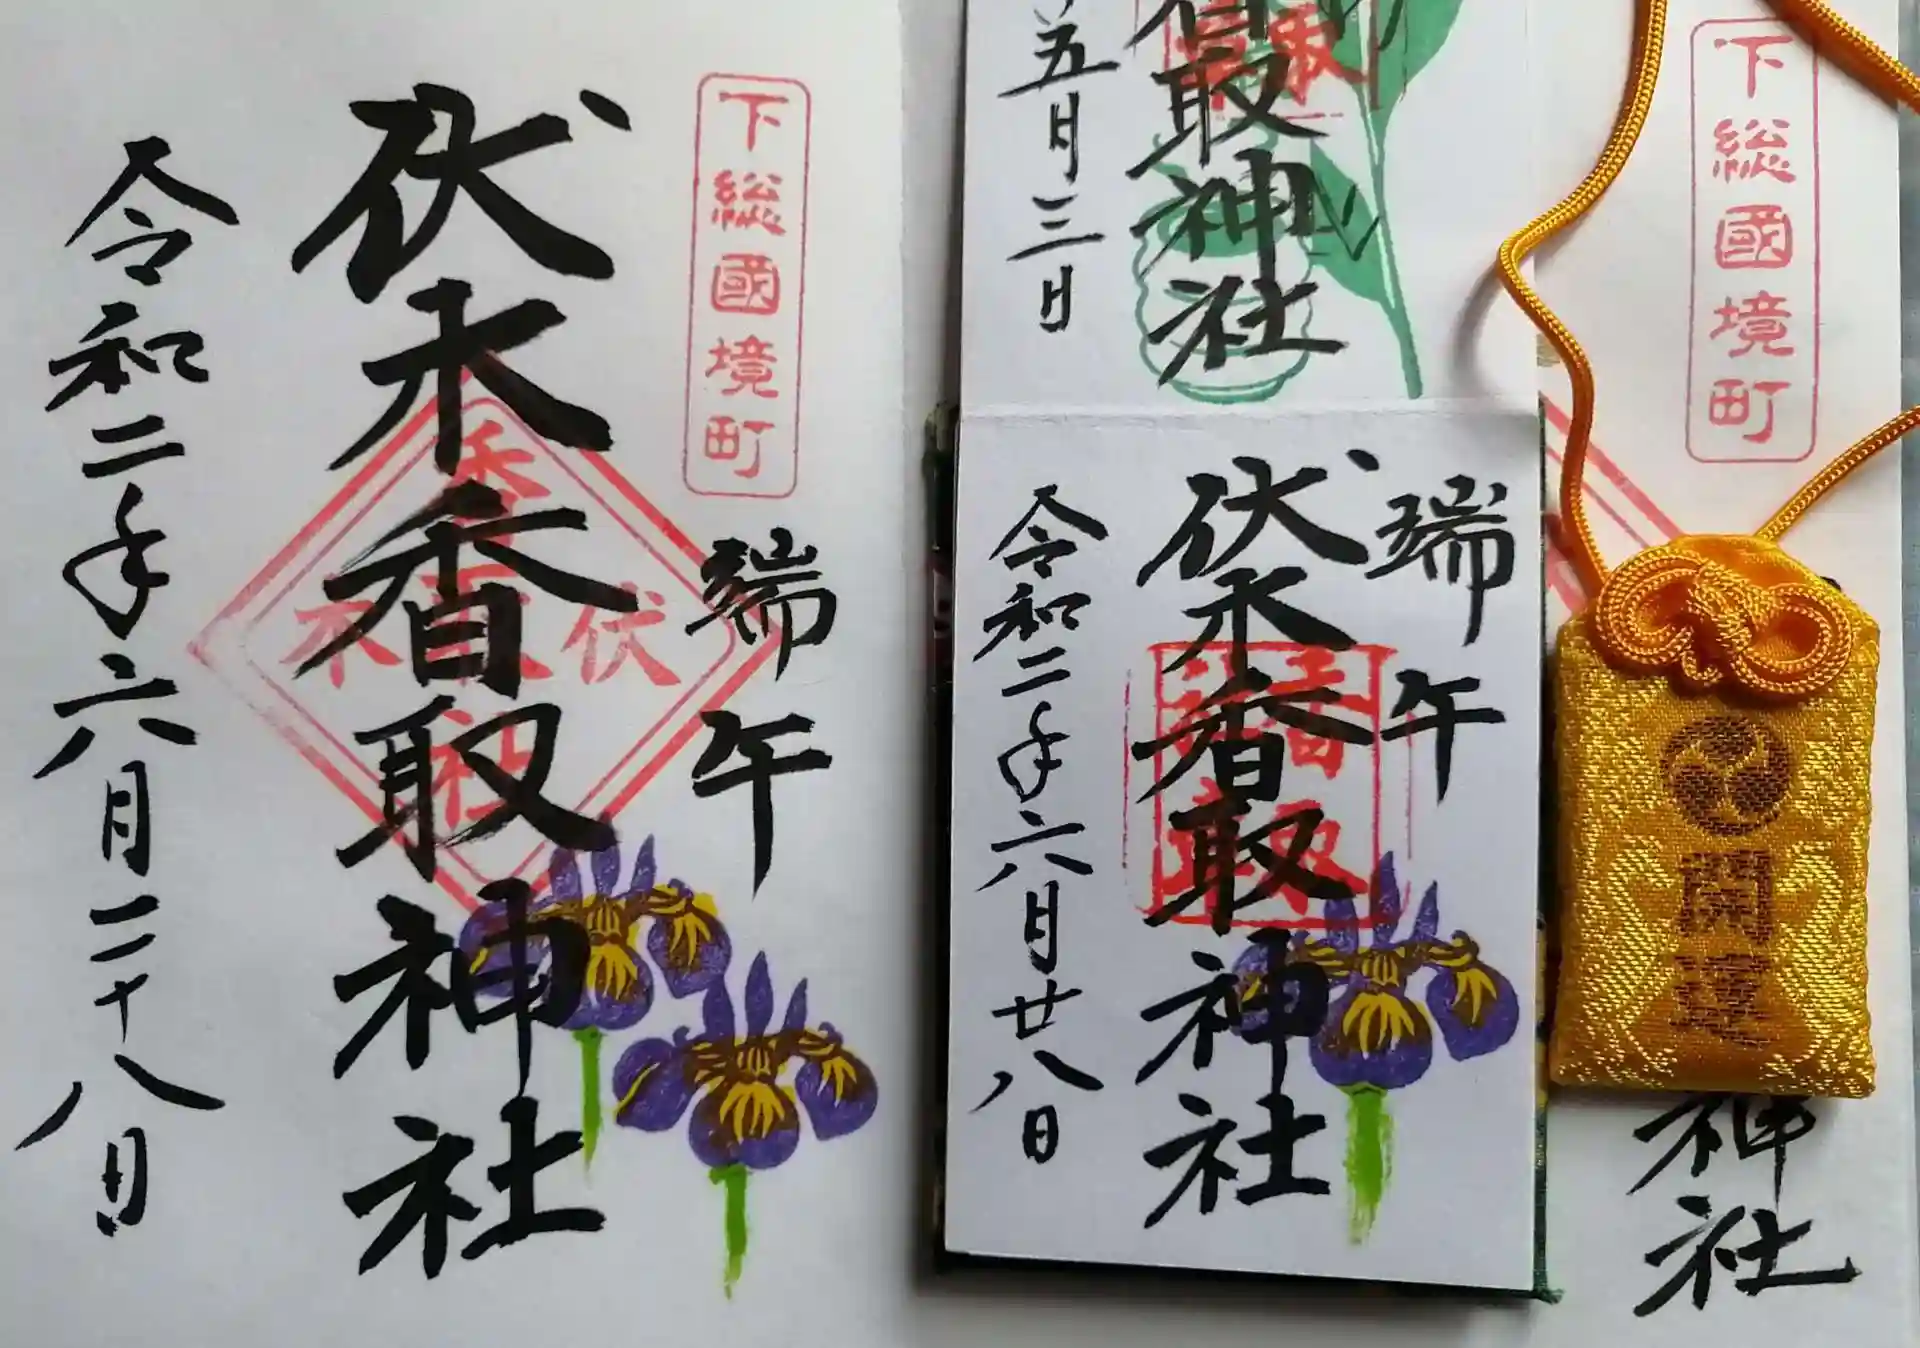 下総國境町
端午
伏木香取神社
令和二年六月二十八日
香取神社
五月三日
端午
伏木香取神社
令和二年六月廿八日
香取
下総國境町
神社
開運